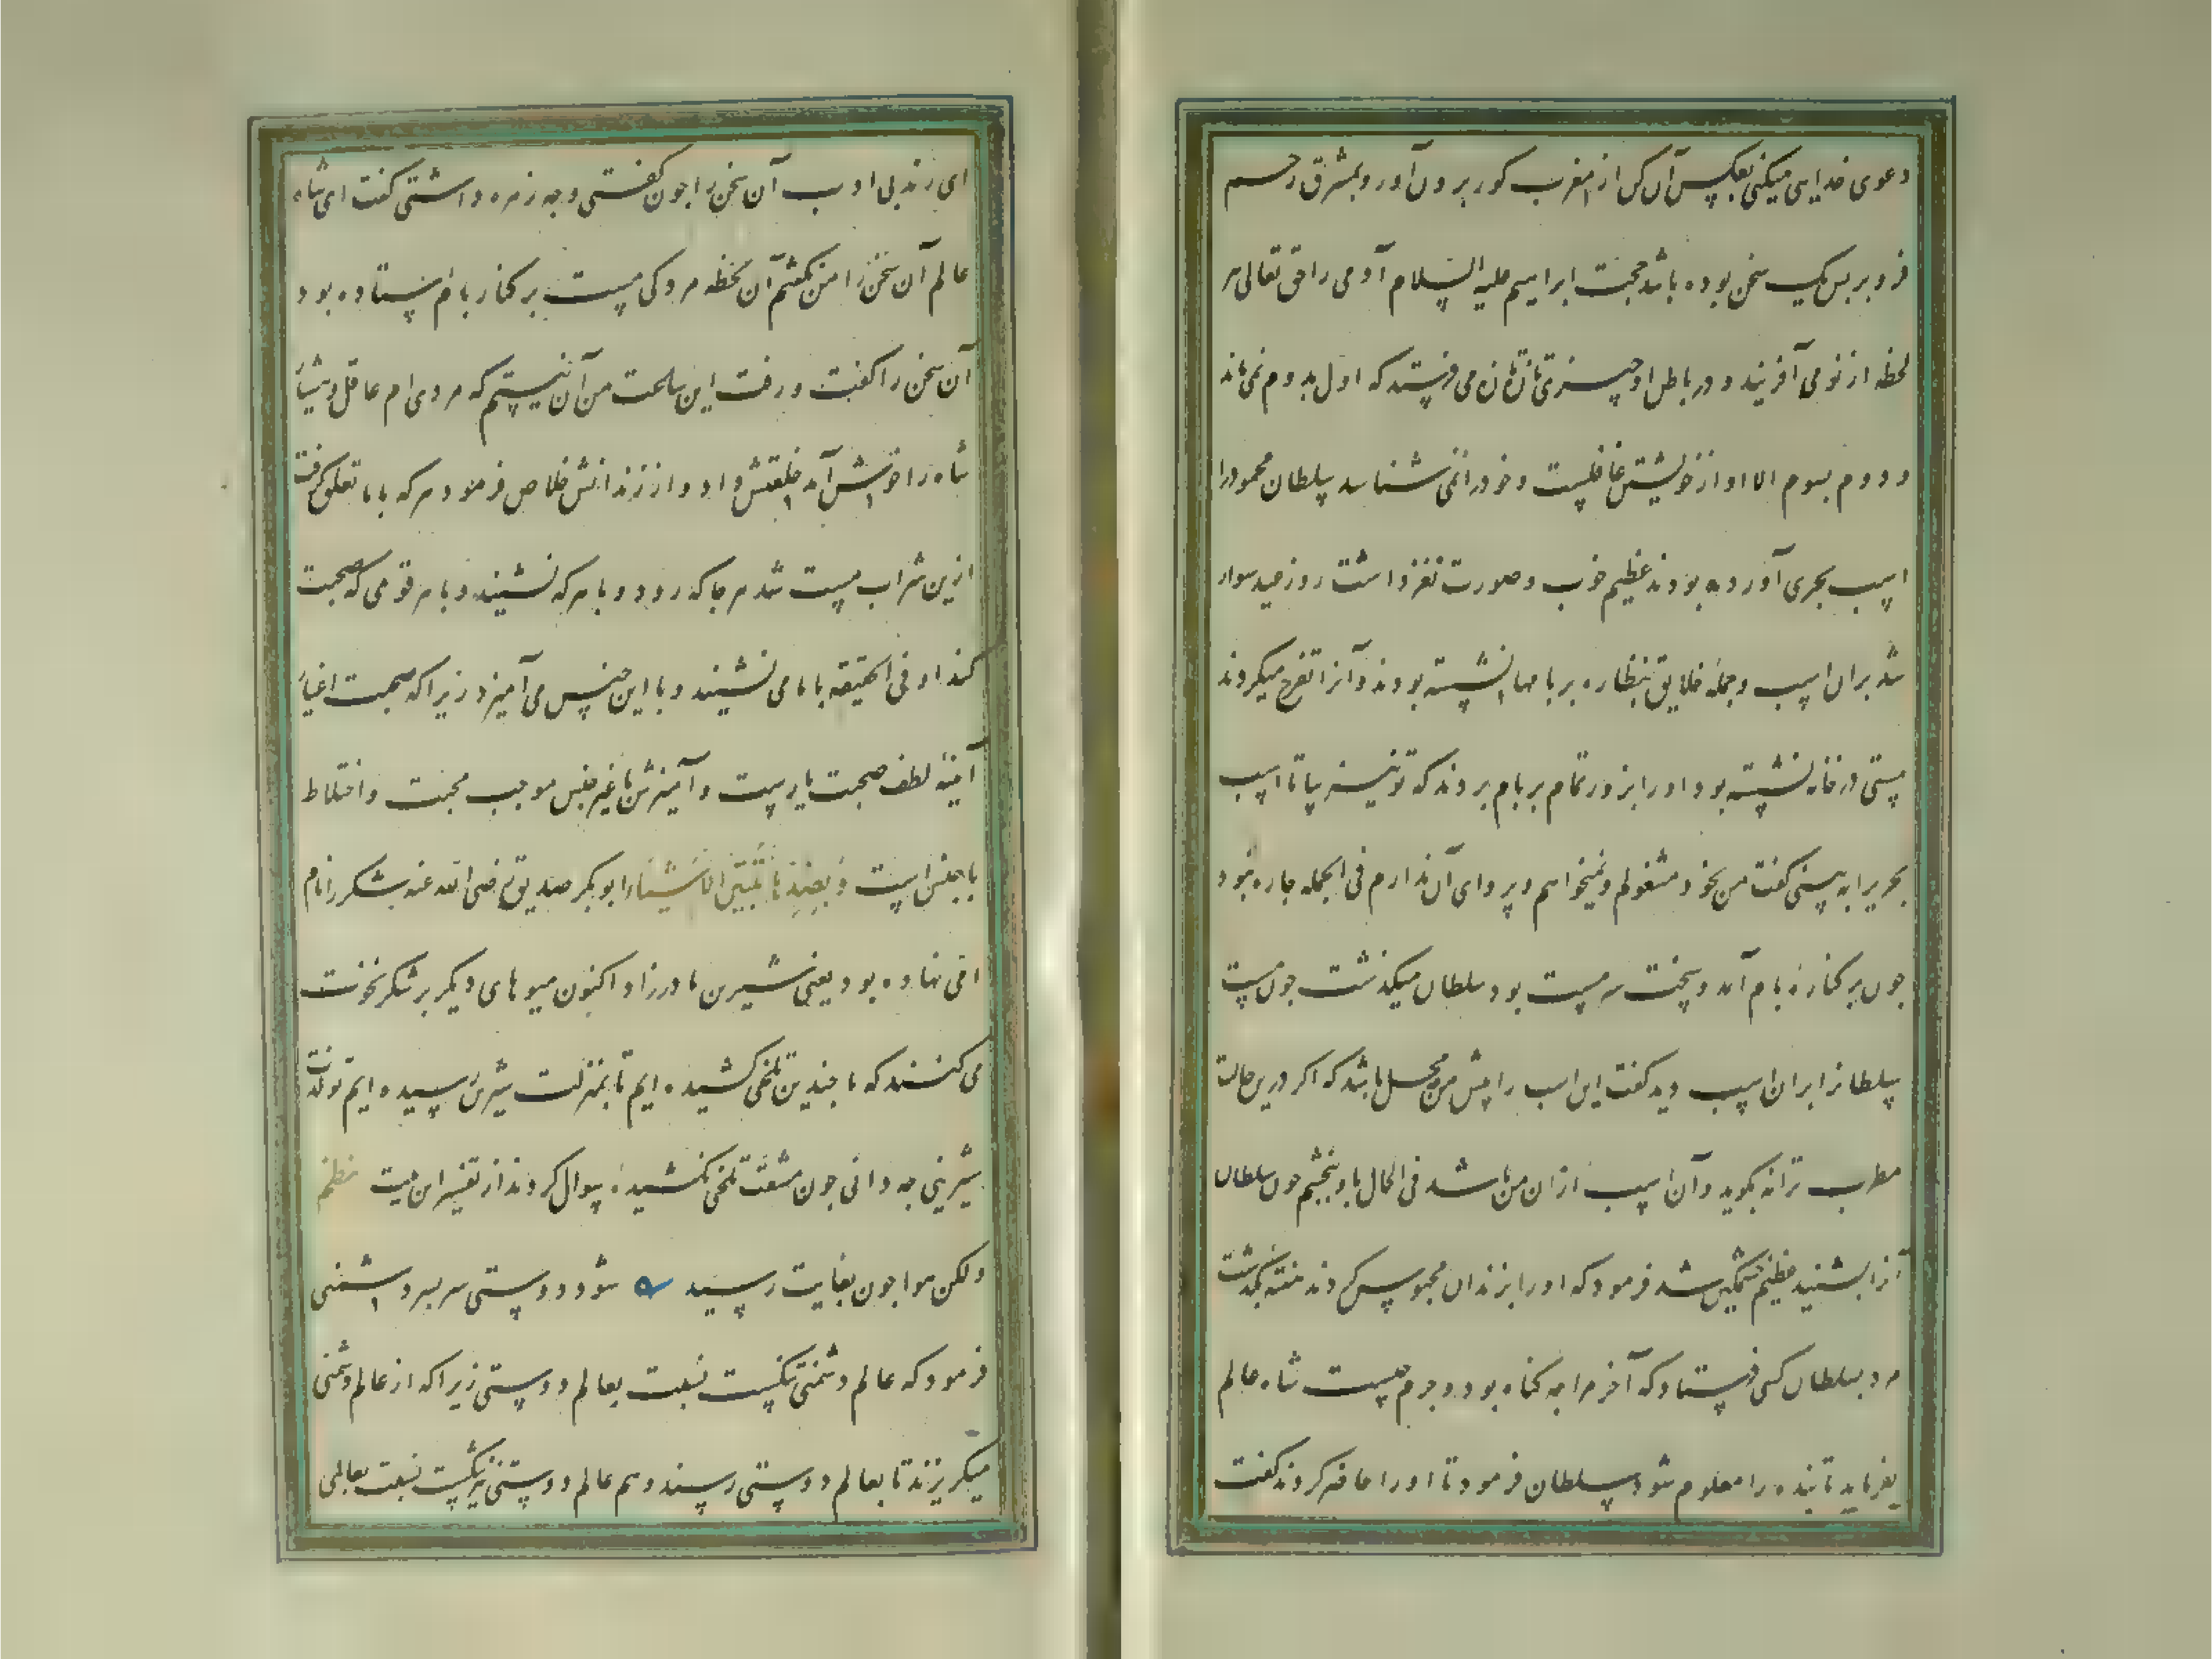 دعوی خدایی میکنی بعکس آن کن از مغرب گور برون آور و بمشرق رحم
فرو بر پس یک سخن بوده باشد حجت ابراهیم علیه السلام آدمی را حق تعالی هر
لحظه از نو می آفریند و در باطل او چیزی تازه تازه می فرستد که اول بدوم نمی ماند
و دوم بسوم الا او از خویشتن غافلست و خود را نمی شناسد سلطان محمود را
اسب بحری آورده بودند عظیم خوب و صورت نغز داشت روز عید سوار
شد بران اسب و جمله خلایق بنظاره بر بامها نشسته بودند و آنرا تفرج میکردند
مستی در خانه نشسته بود او را بزور تمام بر بام بردند که تو نیز بیا تا اسب
بحری را به بینی گفت من بخود مشغولم و نمیخواهم و پروای آن ندارم فی الجمله چاره نبود
چون بر کناره بام آمد و سخت سرمست بود سلطان میگذشت چون مست
سلطانرا بران اسب دید گفت این اسب را پیش من چه محل باشد که اگر درین حالت
مطرب ترانه بگوید و آن اسب ازان من باشد فی الحال باو بخشم چون سلطان
آنرا بشنید عظیم خشمگین شد فرمود که او را بزندان محبوس کردند هفته بگذشت
مرد بسلطان کس فرستاد که آخر مرا چه گناه بود و جرم چیست شاه عالم
بفرماید تا بنده را معلوم شود سلطان فرمود تا او را حاضر کردند گفت
ای رند بی ادب آن سخن را چون گفتی و چه زهره داشتی گفت ای شاه
عالم آن سخن را من نگفتم آن لحظه مردکی مست بر کنار بام ایستاده بود
آن سخن را گفت و رفت این ساعت من آن نیستم که مردی ام عاقل و هشیار
شاه را خوش آمد خلعتش داد و از زندانش خلاص فرمود هر که با ما تعلق گرفت
ازین شراب مست شد هر جا که رود و با هر که نشیند و با هر قومی که صحبت
کند او فی الحقیقه با ما می نشیند و با این جنس می آمیزد زیرا که صحبت اغیار
آینه لطف صحبت یارست و آمیزش با غیر جنس موجب محبت و اختلاط
با جنس است وَبِضِدِّهَا تَتَبَیَّنُ الْاَشْیَاء ابوبکر صدیق رضی الله عنه شکر را نام
امی نهاده بود یعنی شیرین مادرزاد اکنون میوهای دیگر بر شکر نخوت
می کنند که ما چندین تلخی کشیده ایم تا بمنزلت شیرینی رسیده ایم تو لذت
شیرینی چه دانی چون مشقت تلخی نکشیدۀ سوال کردند از تفسیر این بیت نظم
ولکن هوا چون بغایت رسید شود دوستی سر بسر دشمنی
فرمود که عالم دشمنی تنگست نسبت بعالم دوستی زیرا که از عالم دشمنی
میگریزند تا بعالم دوستی رسند و هم عالم دوستی نیز تنگست نسبت بعالمی